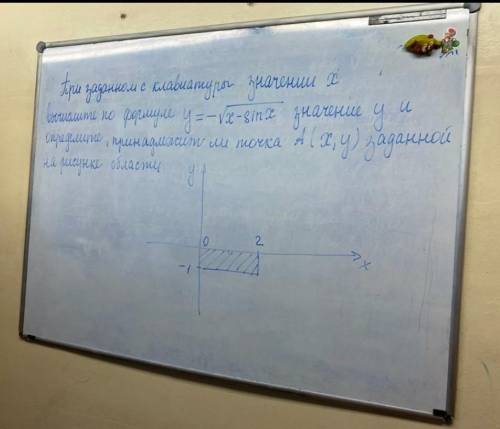 При заданном с клавиатуры значении x
вычислите по формуле y = -√x-sinx значение y и
определите, принадлежит ли точка A(x,y) заданной
на рисунке области
y
0 2
-1
x